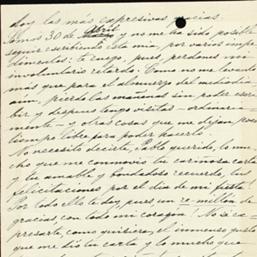 doy las más expresivas gracias.
Somos 30 de Abril y no me ha sido posible
seguir escribiendo esta mia, por varios impe
dimentos: te ruego, pues, perdones mi
involuntario retardo. Como no me levanto
más que para el almuerzo del mediodia
aun, pierdo las mañanas sin poder escri
bir y despues tengo visitas - ordinaria
mente - y otras cosas que me dejan, poco
tiempo libre para poder hacerlo.
No necesito decirte, Pablo querido, lo mu
cho que me conmovió tu cariñosa carta
y tu amable y bondadoso recuerdo, tus
felicitaciones por el dia de mi fiesta!
Por todo ello te doy, pues, un millón de
gracias, con todo mi corazon! No sé ex
presarte, como quisiera, el inmenso gusto
que me dió tu carta y lo mucho que